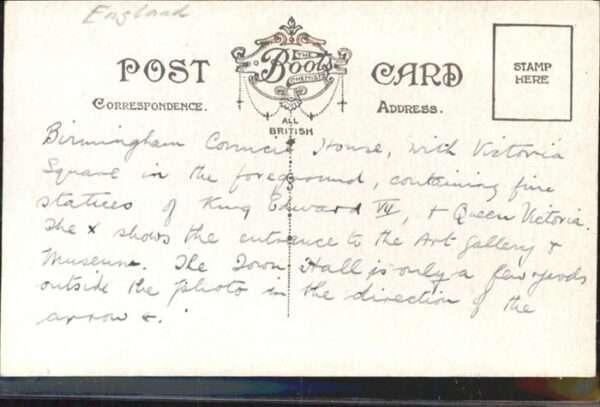 England
POST CARD
THE
Boots
CHEMISTS
STAMP
HERE
CORRESPONDENCE.
ADDRESS.
ALL
BRITISH
Birmingham Council House, with Victoria
Square in the foreground, containing fine
statues of King Edward VII, + Queen Victoria.
The x shows the entrance to the Art Gallery &
Museum. The Town Hall is only a few yards
outside the photo in the direction of the
arrow